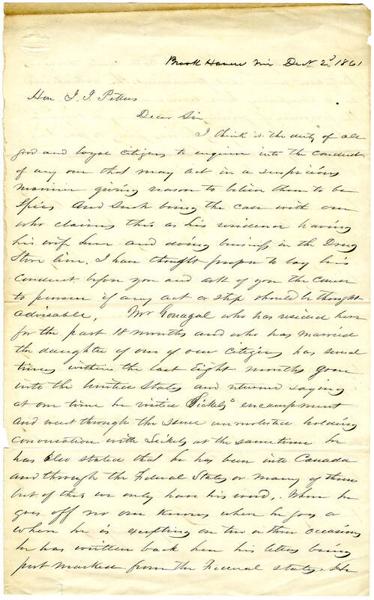 Brook Haven Mi Dec 2d 1861
Hon J. J. Pettus
Dear Sir
I think it the duty of all
good and loyal citizens to enquire into the conduct
of any one that may act in a suspicious
manner giving reason to believe them to be
Spies And Such being the case with one
who claims this as his residence having
his wife here and doing business in the Drug
Store line, I have thought proper to lay his
conduct before you and ask of you the course
to pursue if any act or step should be thought
adviseable. Mr who has resided here
for the past 18 months and who has married
the daughter of one of our citizens has several
times within the last Eight months gone
into the United States and returned saying
at one time he visited Sickels encampment
and went through the same unmolested holding
Conversation with Sickels at the same time he
has also stated that he has been into Canada
and through the Federal States or many of them
but of this we only have his word. When he
goes off no one knows where he goes or
where he is excepting on two or three occasions
he has written back here his letters being
post marked from the Federal States. He